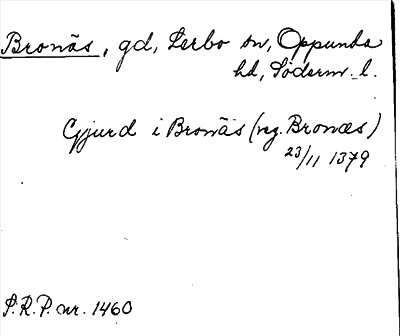 Bronäs, gd, Lerbo sn, Oppunda
hd, Söderm. l.
Gjurd i Bronäs (sg. Bronæs)
23/11 1379
S.R.P. nr. 1460